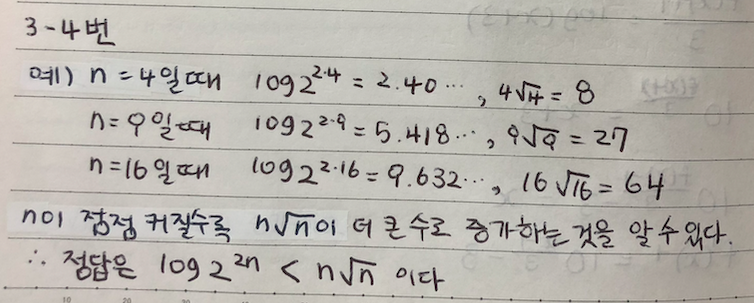 3-4번
예) n = 4일때 log2^{2·4} = 2.40···, 4√4 = 8
n = 9일때 log2^{2·9} = 5.418···, 9√9 = 27
n = 16일때 log2^{2·16} = 9.632···, 16√16 = 64
n이 점점 커질수록 n√n이 더 큰 수로 증가하는 것을 알 수 있다.
∴ 정답은 log2^{2n} < n√n 이다